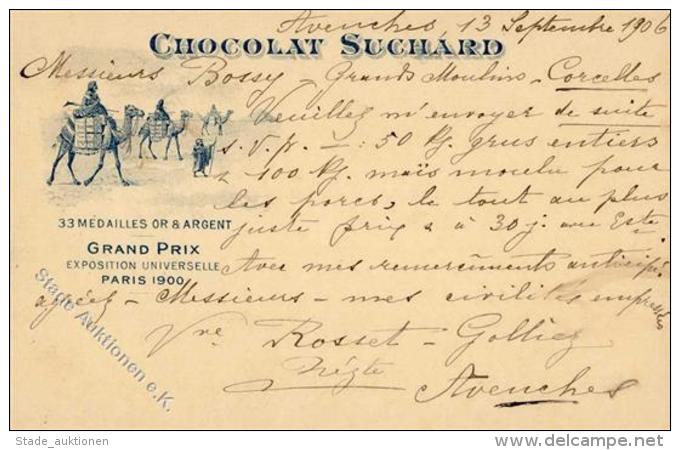 Avenches, 13 Septembre 1906
CHOCOLAT SUCHARD
Messieurs Bossy - Grands Moulins - Corcelles
Veuillez m'envoyer de suite
s. v. p. - : 50 Kg. grus entiers
100 Kg. maïs moulu pour
les porcs, le tout au plus
juste prix à 30 j. avec Este.
33 MÉDAILLES OR & ARGENT
GRAND PRIX
EXPOSITION UNIVERSELLE
PARIS 1900
Avec mes remerciements anticipés
agréez - Messieurs - mes civilités empressées
Vve Rosset - Golliez
Négte
Avenches
Stade Auktionen e.K.
Stade_auktionen
www.delcampe.net